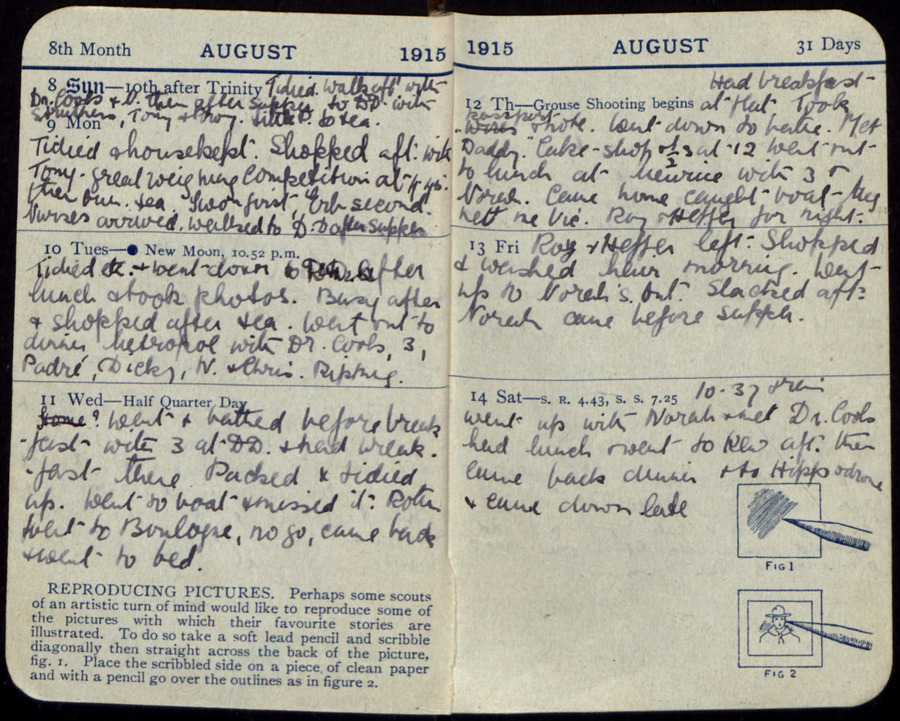 8th Month AUGUST 1915
8 Sun—10th after Trinity Tidied. Walk aft with
Dr. Cools & N. then after supper to DD. with
Struthers, Tony & Roy. to tea.
9 Mon
Tidied & housekept. Shopped aft. with
Tony. great weighing Competition at 4.45.
then bun. tea. I won first, Erb second.
Nurses arrived. walked to D.D after supper
10 Tues—● New Moon, 10.52 p.m.
Tidied etc. & went down to D.D. after
lunch & took photos. Busy after
& shopped after tea. Went out to
dinner Metropol with Dr. Cools, 3,
Padré, Dicky, N. & Chris. Ripping.
11 Wed—Half Quarter Day
? Went & bathed before break
-fast with 3 at DD. & had break-
-fast there. Packed & tidied
up. Went to boat & missed it.
Went to Boulogne, no go, came back
& went to bed.
REPRODUCING PICTURES. Perhaps some scouts
of an artistic turn of mind would like to reproduce some of
the pictures with which their favourite stories are
illustrated. To do so take a soft lead pencil and scribble
diagonally then straight across the back of the picture,
fig. 1. Place the scribbled side on a piece of clean paper
and with a pencil go over the outlines as in figure 2.
1915 AUGUST 31 Days
Had breakfast
12 Th—Grouse Shooting begins at flat. Took
passport
& note. Went down to bathe. Met
Daddy. Cake-shop & 3 at 12 went out
to lunch at with 3 &
Norah. Came home caught boat. They
met me Vic. Roy & Heffer for night.
13 Fri Roy & Heffer left. Shopped
& washed hair morning. Went
up to Norah's. out. Slacked aft:
Norah came before supper.
14 Sat—S. R. 4.43, S. S. 7.25 10-37 train
went up with Norah & met Dr. Cools
had lunch & went to Kew aft. then
came back dinner & to Hippodrome
& came down late
FIG 1
FIG 2